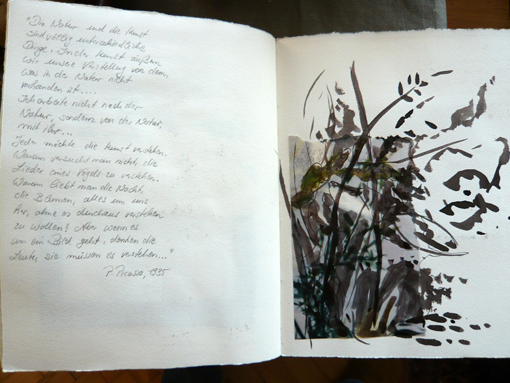 "Die Natur und die Kunst
sind völlig unterschiedliche
Dinge. In der Kunst äußern
wir unsere Vorstellung von dem,
was in der Natur nicht
vorhanden ist....
Ich arbeite nicht nach der
Natur, sondern vor der Natur,
mit ihr...
Jeder möchte die Kunst verstehen.
Warum versucht man nicht, die
Lieder eines Vogels zu verstehen.
Warum liebt man die Nacht,
die Blumen, alles um uns
her, ohne es durchaus verstehen
zu wollen? Aber wenn es
um ein Bild geht, denken die
Leute, sie müssen es verstehen..."
P. Picasso, 1935